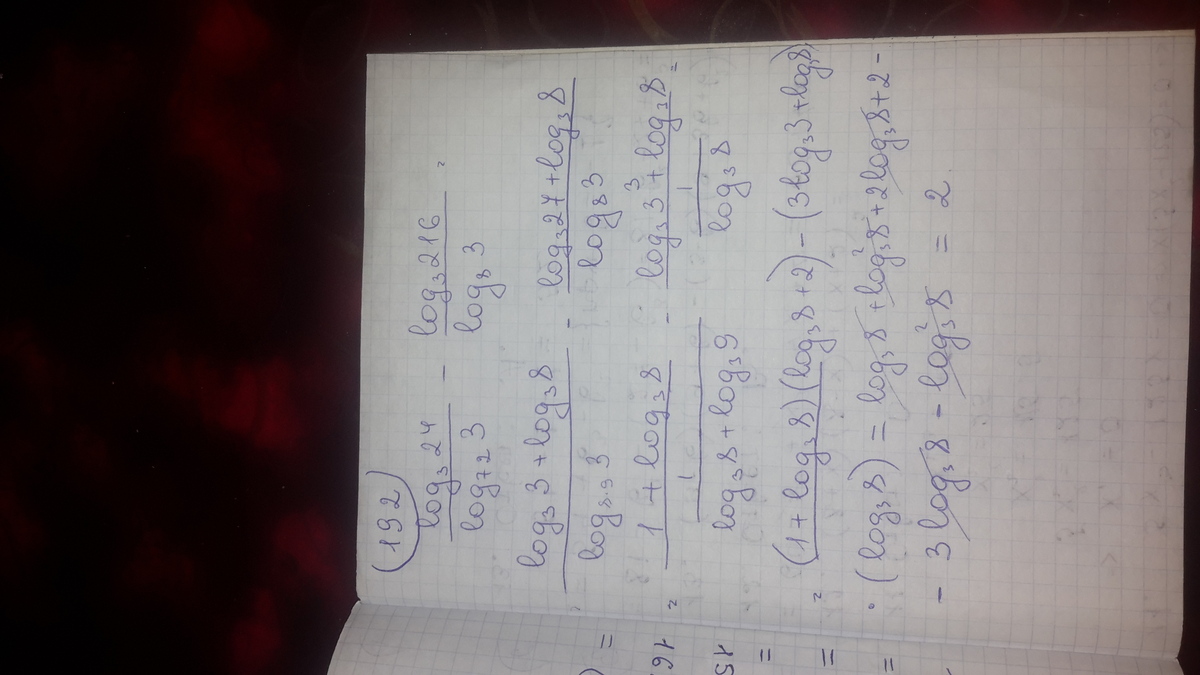 (192)
log₃24 / log₇₂3 - log₃216 / log₈3 =
(log₃3 + log₃8) / log₈.₉3 - (log₃27 + log₃8) / log₈3
= (1 + log₃8) / (1 / (log₃8 + log₃9)) - (log₃3³ + log₃8) / (1 / log₃8) =
= (1 + log₃8)(log₃8 + 2) - (3log₃3 + log₃8)
· (log₃8) = log₃8 + log₃²8 + 2log₃8 + 2 -
- 3log₃8 - log₃²8 = 2
) =
16
15
=
=
=